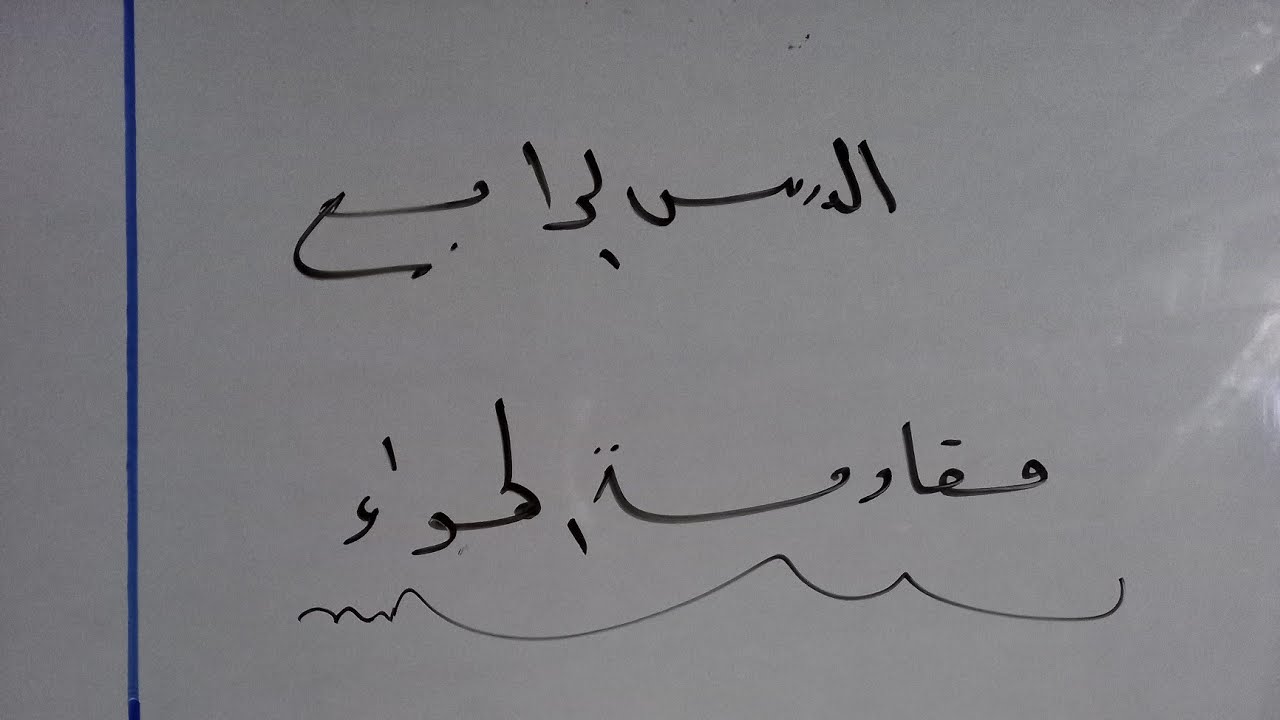 الدرس الرابع
مقاومة الهواء